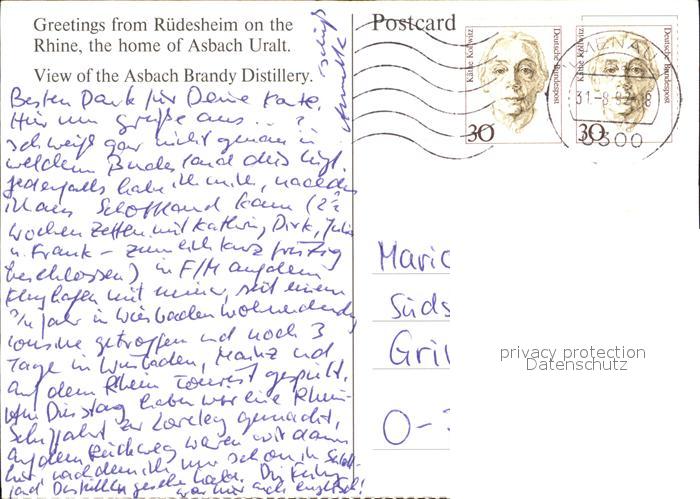 Greetings from Rüdesheim on the
Rhine, the home of Asbach Uralt.
View of the Asbach Brandy Distillery.
Besten Dank für Deine Karte.
Hier nun grüße aus ... ?
Ich weiß gar nicht genau in
welchem Bundesland dies liegt.
Jedenfalls habe ich mich, nachdem
ich aus Schottland kam (2½
Wochen Zelten mit Kathrin, Dirk, Julia
u. Frank - ziemlich kurzfristig
beschlossen) in F/M auf dem
Flughafen mit meiner, seit einem
¾ Jahr in Wiesbaden wohnenden
Cousine getroffen und noch 3
Tage in Wiesbaden, Mainz und
auf dem Rhein Tourist gespielt.
Am Dienstag haben wir eine Rhein-
Schiffahrt zur Loreley gemacht,
auf dem Rückweg waren wir dann
hier, nachdem ich mir schon in Schott-
land Destillen gesehen habe. Die Führung
war hier auch englisch!
Tschüß
Postcard
Käthe Kollwitz
Deutsche Bundespost
30
Käthe Kollwitz
Deutsche Bundespost
30
ILMENAU
31.-8.92-18
6300
Maric
Süds
Gri
O-
privacy protection
Datenschutz